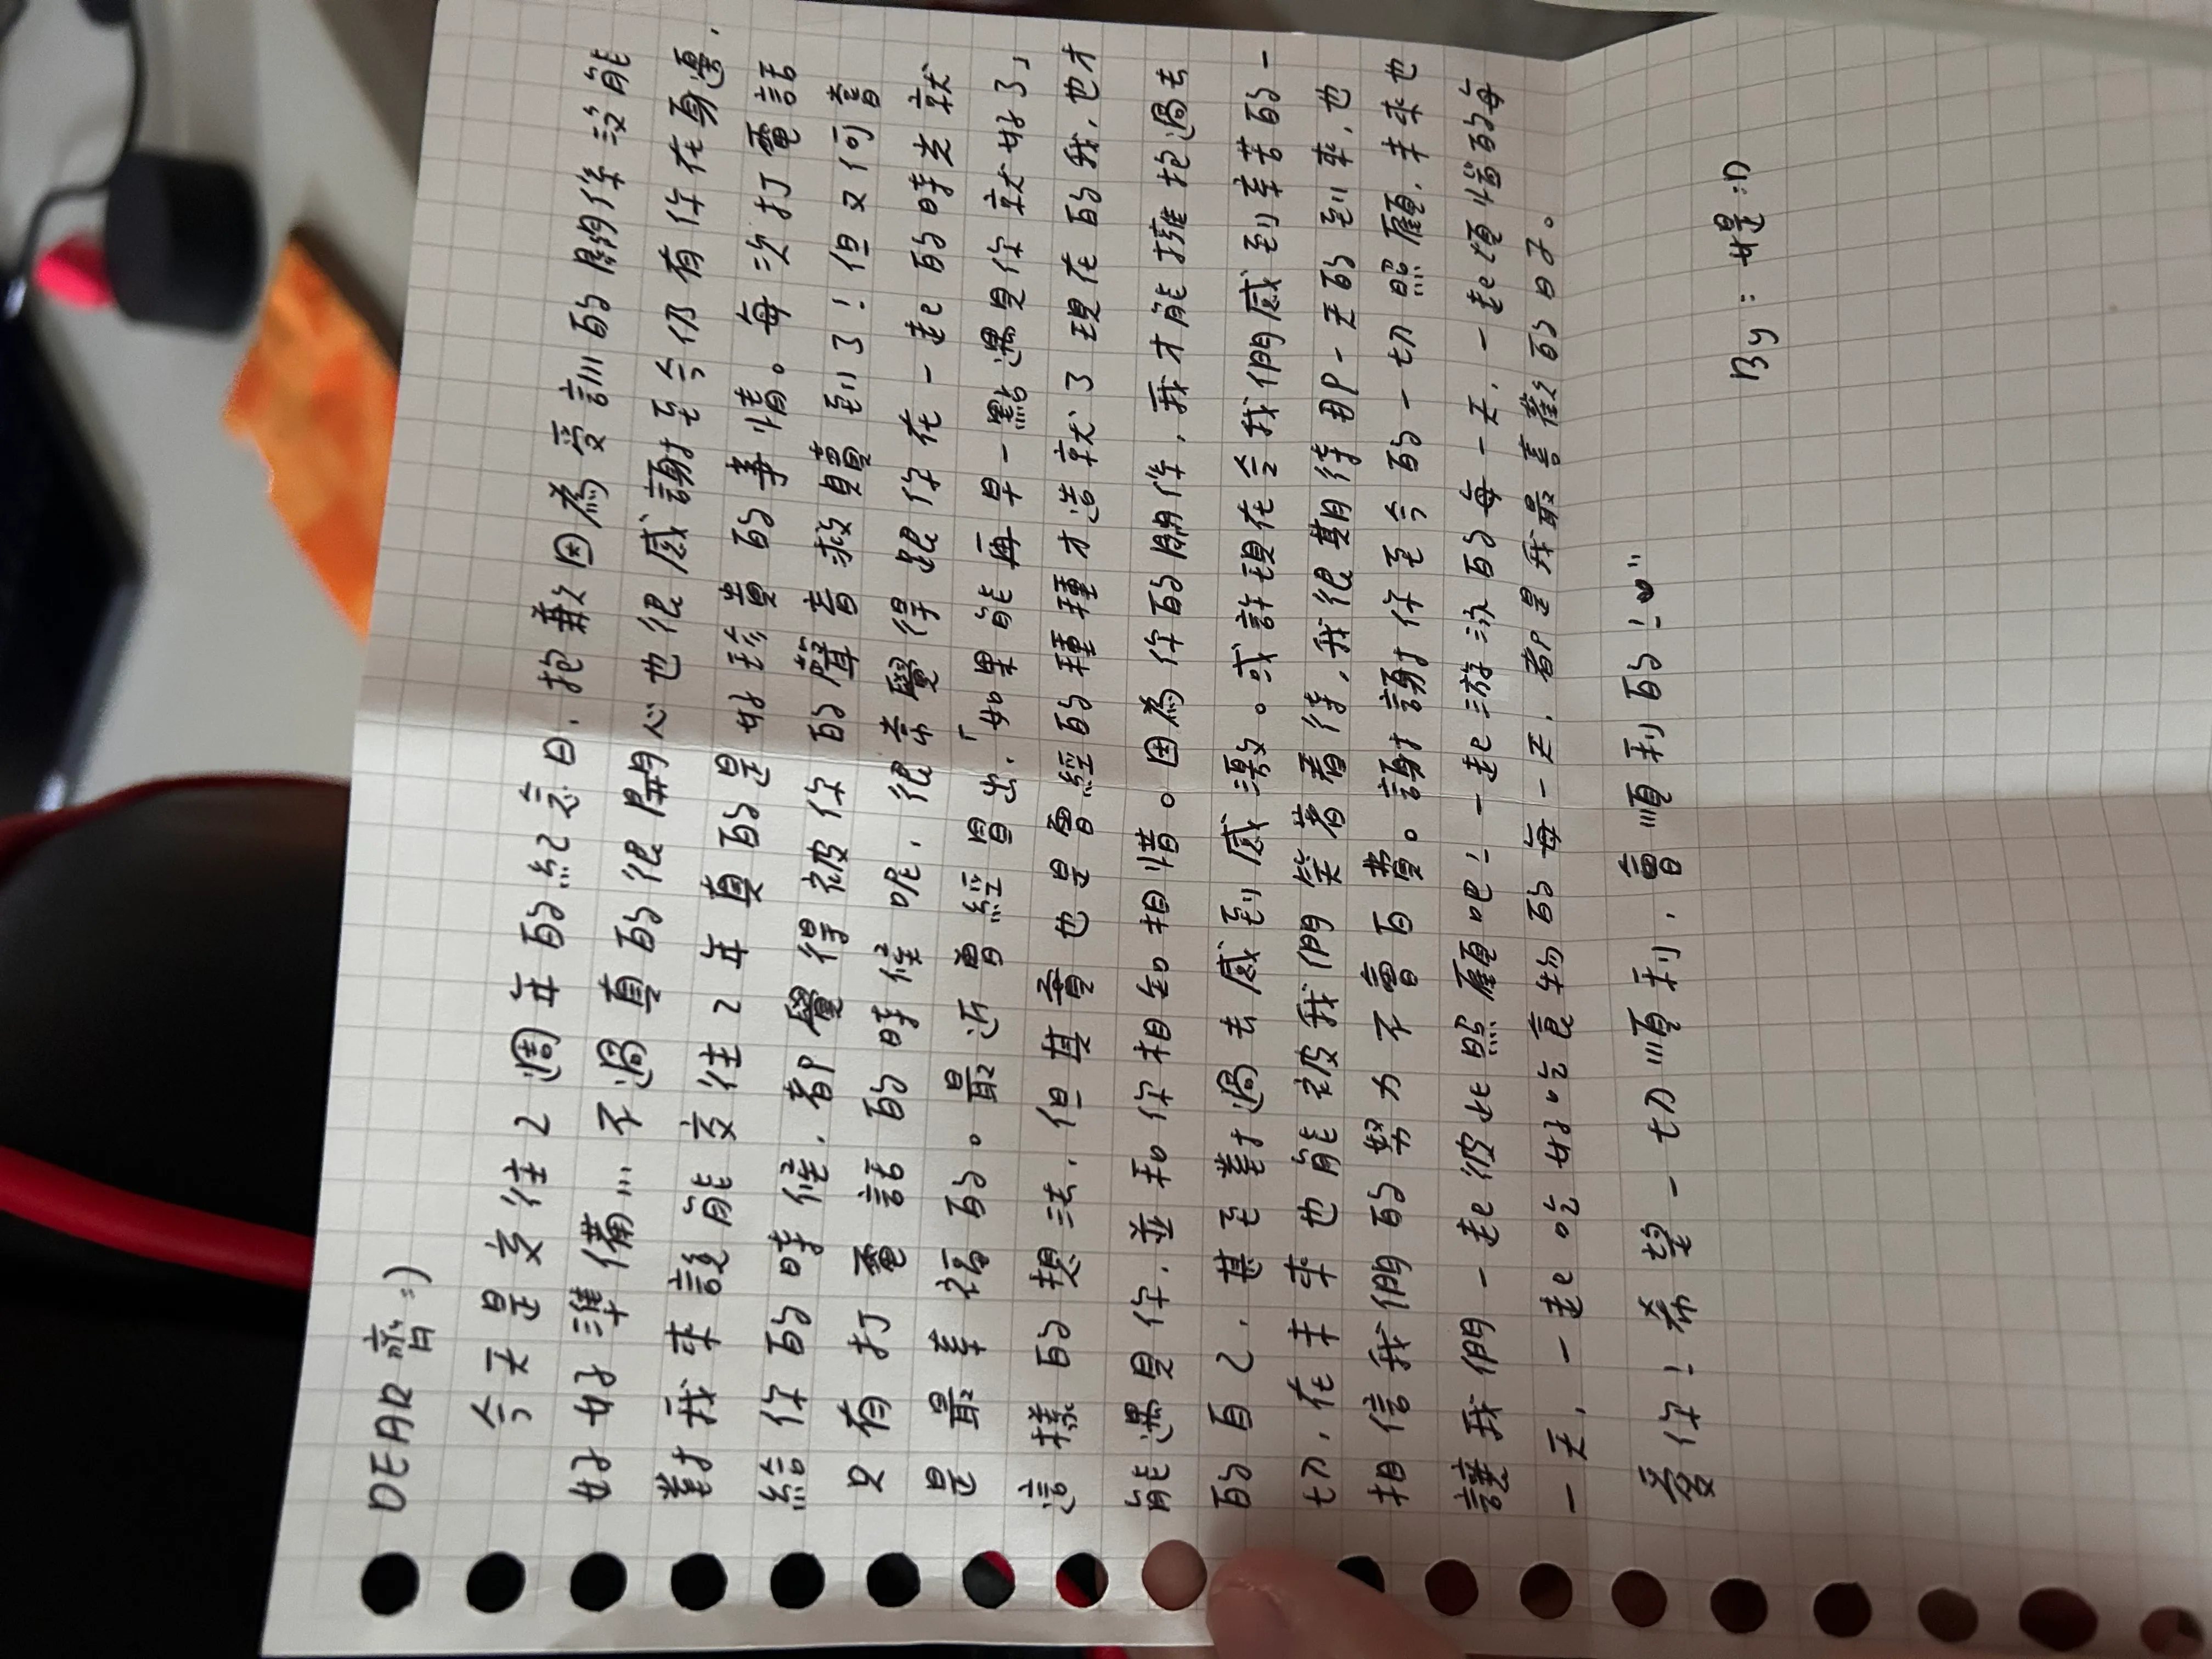 DEAR 暟:)
今天是交往2週年的紀念日,抱歉因為受訓的關係沒能
好好準備...不過真的很開心也很感謝至今仍有你在身邊,
對我來說能交往2年真的是好珍貴的事情。每次打電話
給你的時候,都覺得被你的聲音救贖到了!但又何嘗
只有打電話的時候呢,很常覺得跟你在一起的時光就
是最幸福的。最近曾經冒出,「如果能再早一點遇見你就好了」
這樣的想法,但其實也是曾經的種種才造就了現在的我,也才
能遇見你,並和你相知相惜。因為你的關係,我才能擁抱過去
的自己,甚至對過去感到感激。或許現在令我們感到辛苦的一
切,在未來也能被我們笑著看待,我很期待那一天的到來,也
相信我們的努力不會白費。謝謝你至今的一切照顧,未來也
讓我們一起彼此照顧吧!一起游泳的每一天,一起復健的每
一天,一起吃好吃食物的每一天,都是我最喜歡的日子。
愛你!希望一切順利,會順利的!
By: